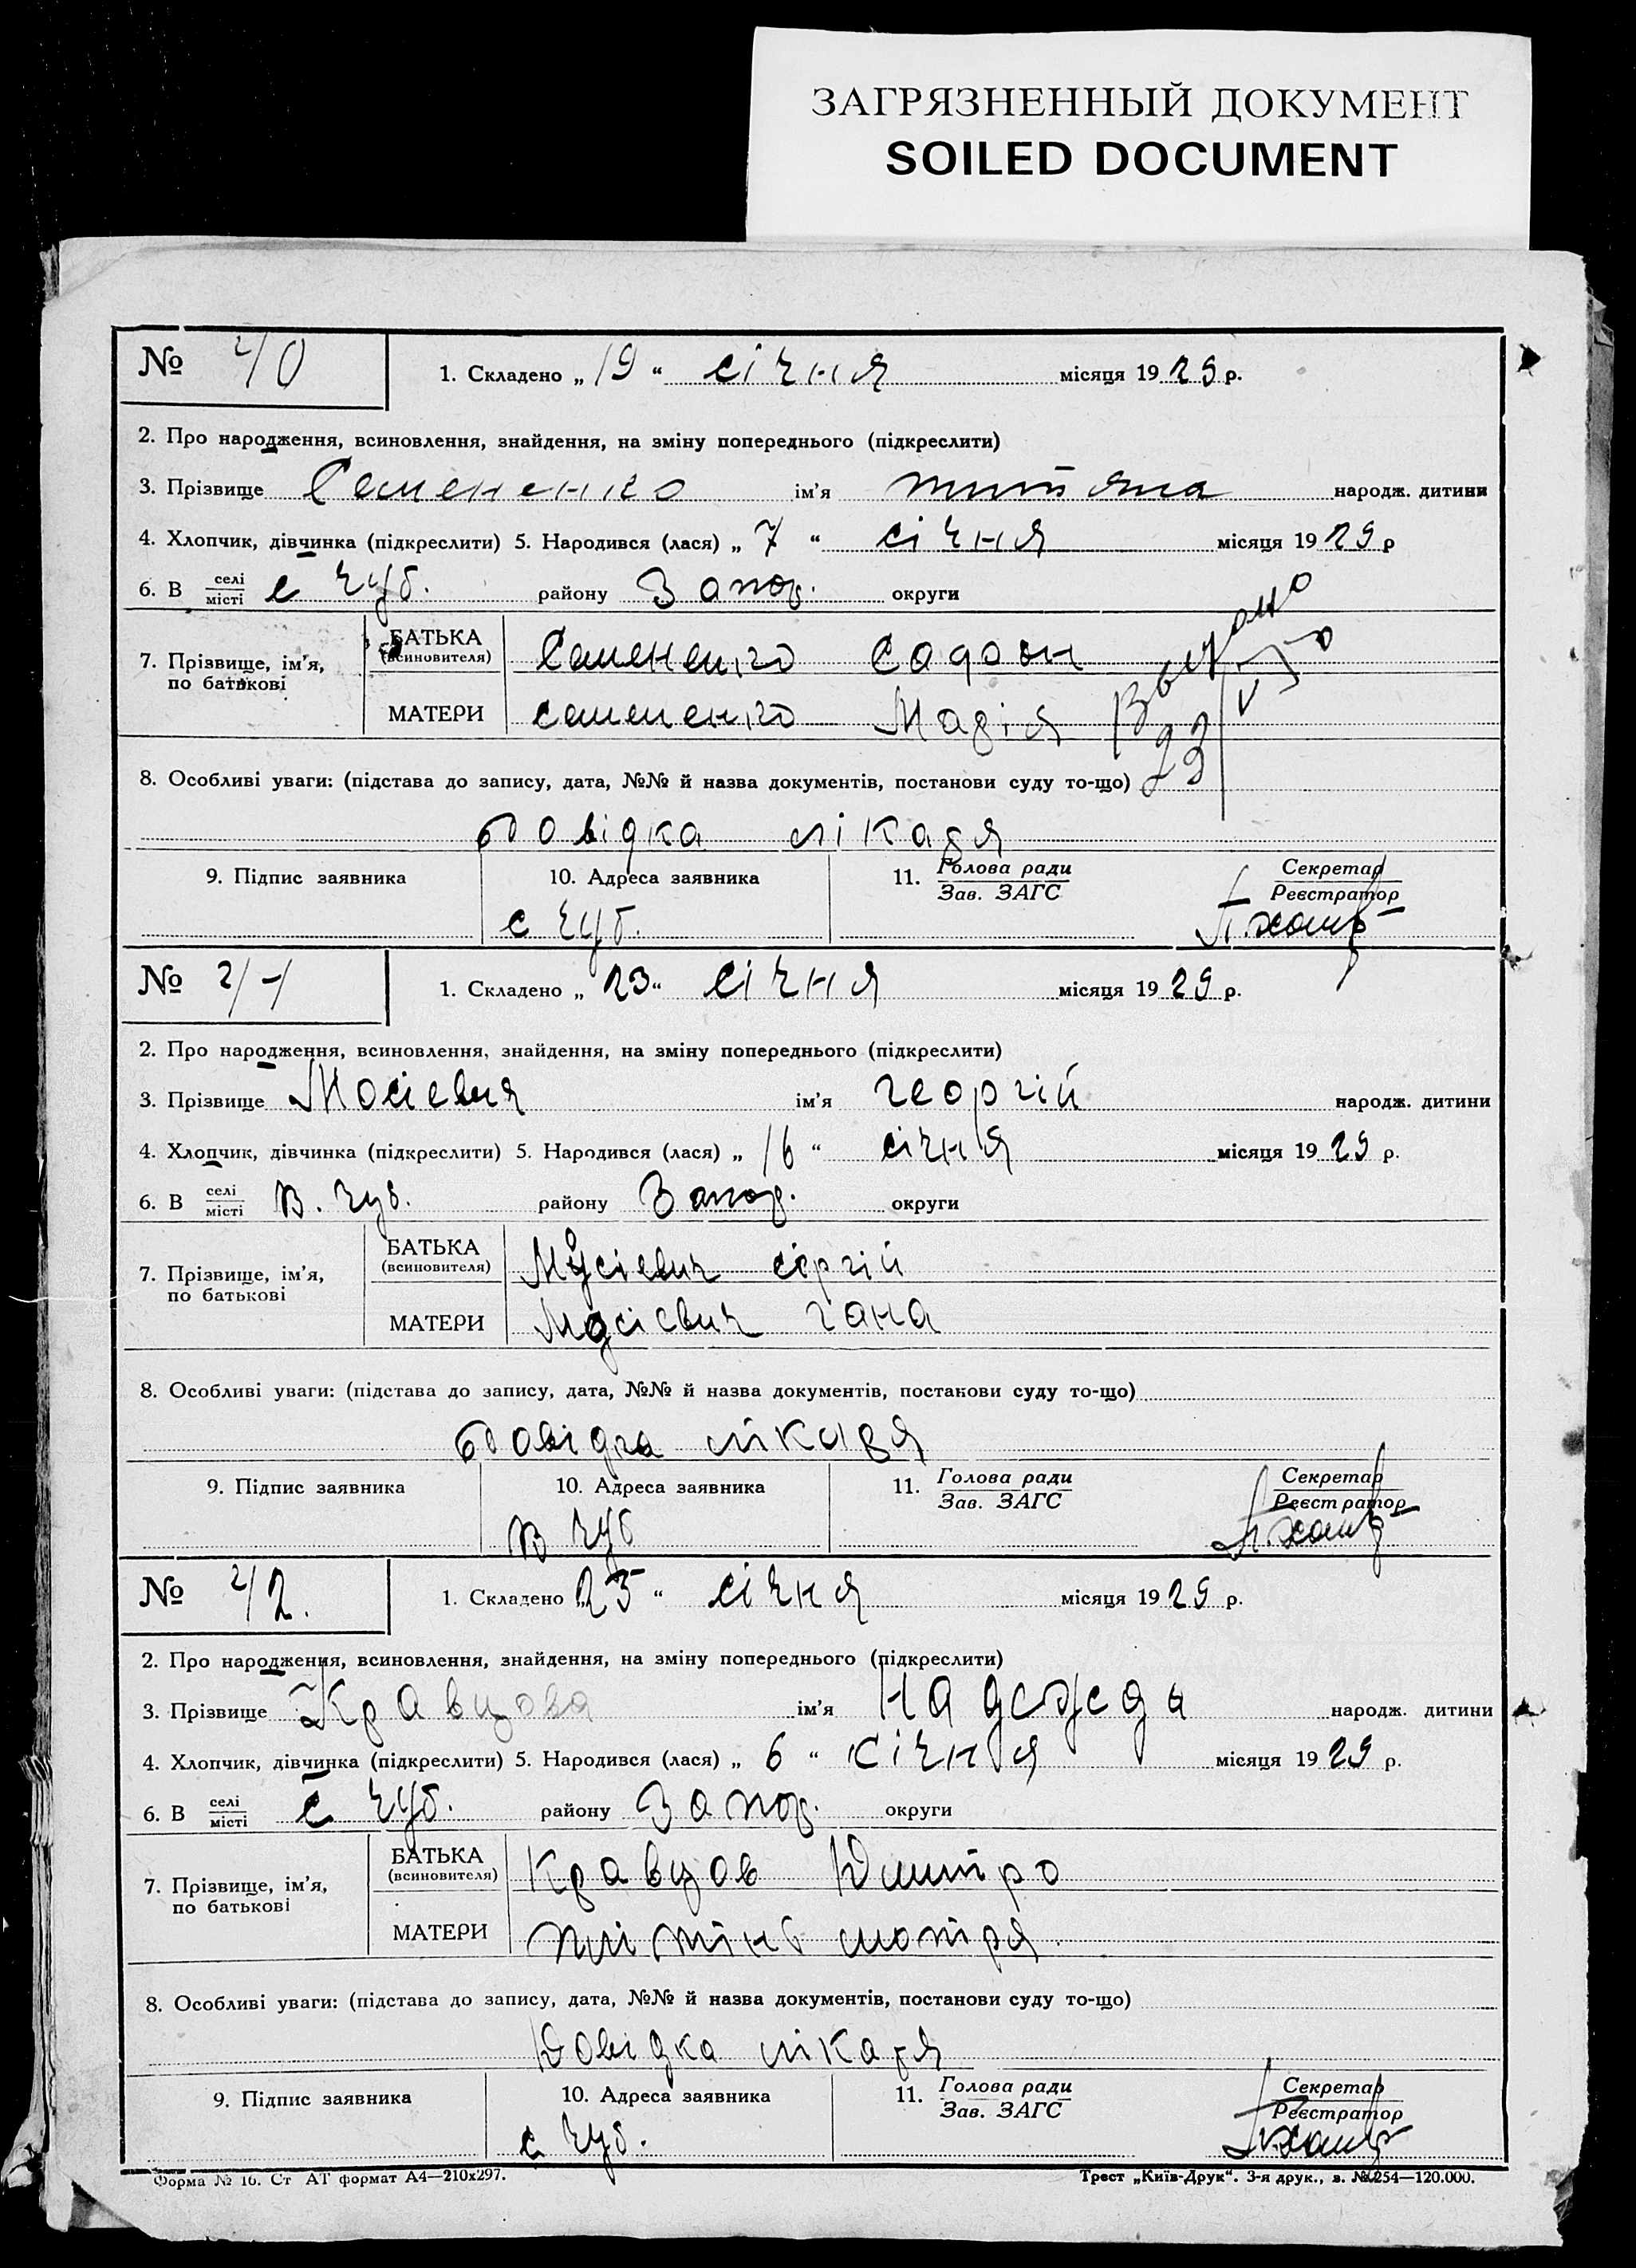 ЗАГРЯЗНЕННЫЙ ДОКУМЕНТ
SOILED DOCUMENT
№ 40 1. Складено „19“ січня місяця 1929 р.
2. Про народження, всиновлення, знайдення, на зміну попереднього (підкреслити)
3. Прізвище Семененко ім'я народж. дитини
4. Хлопчик, дівчинка (підкреслити) 5. Народився (лася) „7“ січня місяця 1929 р
6. В селі місті с Чуб. району Запор. округи
7. Прізвище, ім'я, по батькові
БАТЬКА (всиновителя) Семененко
МАТЕРИ Семененко Марія
Выдано
8. Особливі уваги: (підстава до запису, дата, №№ й назва документів, постанови суду то-що)
Довідка лікаря
9. Підпис заявника 10. Адреса заявника 11. Голова ради Зав. ЗАГС Секретар Реєстратор
с Чуб.
№ 41 1. Складено „23“ січня місяця 1929 р.
2. Про народження, всиновлення, знайдення, на зміну попереднього (підкреслити)
3. Прізвище ім'я георгій народж. дитини
4. Хлопчик, дівчинка (підкреслити) 5. Народився (лася) „16“ січня місяця 1929 р.
6. В селі місті В. Чуб. району Запор. округи
7. Прізвище, ім'я, по батькові
БАТЬКА (всиновителя) Мусієвич сергій
МАТЕРИ Мусієвич гана
8. Особливі уваги: (підстава до запису, дата, №№ й назва документів, постанови суду то-що)
Довідка лікаря
9. Підпис заявника 10. Адреса заявника 11. Голова ради Зав. ЗАГС Секретар Реєстратор
В Чуб
№ 42. 1. Складено „25“ січня місяця 1929 р.
2. Про народження, всиновлення, знайдення, на зміну попереднього (підкреслити)
3. Прізвище Кравцова ім'я Надежда народж. дитини
4. Хлопчик, дівчинка (підкреслити) 5. Народився (лася) „6“ січня місяця 1929 р.
6. В селі місті с Чуб. району Запор. округи
7. Прізвище, ім'я, по батькові
БАТЬКА (всиновителя) Кравцов Дмитро
МАТЕРИ мотря
8. Особливі уваги: (підстава до запису, дата, №№ й назва документів, постанови суду то-що)
Довідка лікаря
9. Підпис заявника 10. Адреса заявника 11. Голова ради Зав. ЗАГС Секретар Реєстратор
с Чуб.
Форма № 16. Ст АТ формат А4—210х297. Трест „Київ-Друк“. 3-я друк., з. №254—120.000.